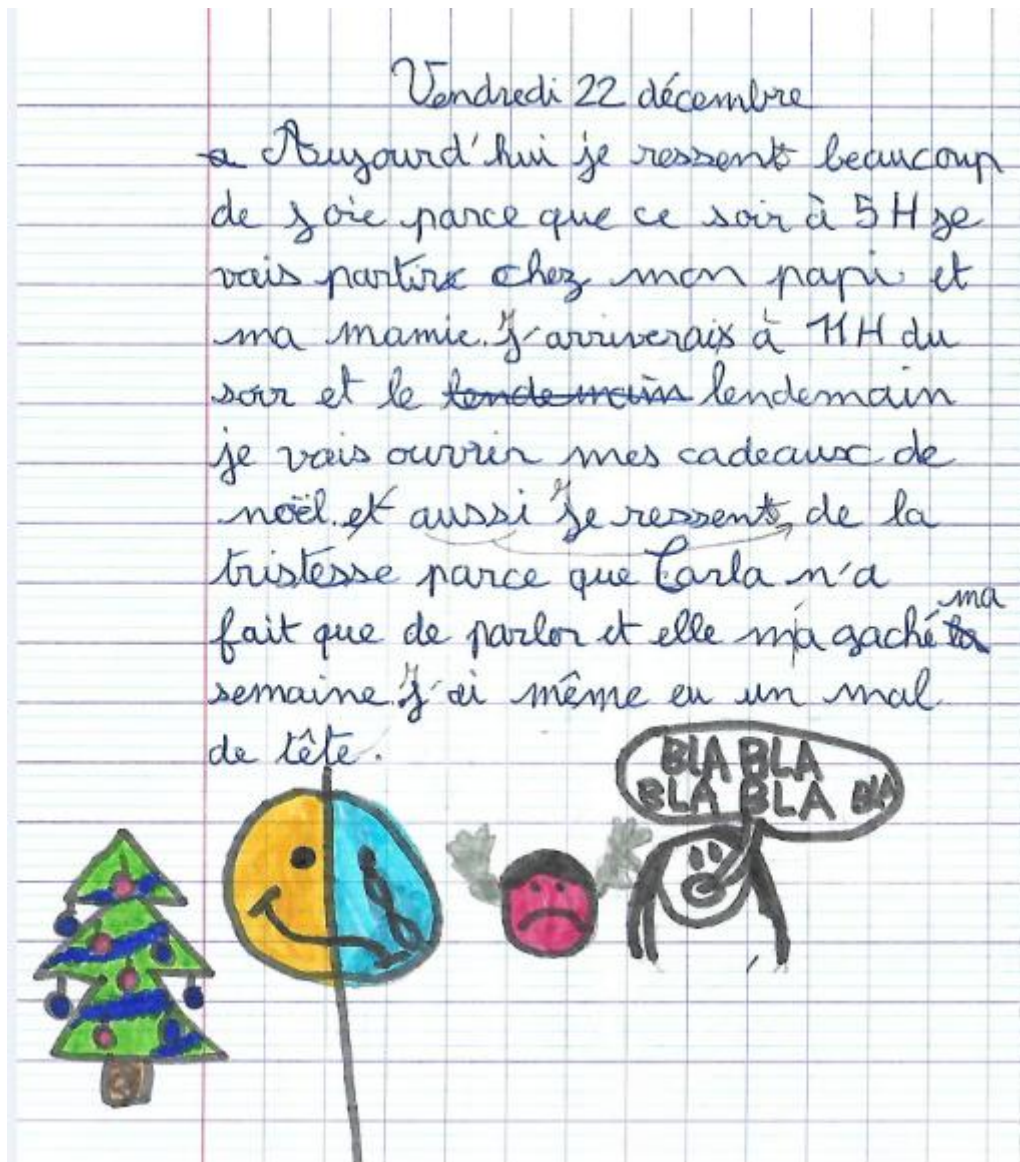 Vendredi 22 décembre
a Aujourd'hui je ressent beaucoup
de joie parce que ce soir à 5H je
vais partir chez mon papi et
ma mamie. J'arriverais à 11H du
soir et le lendemain lendemain
je vais ouvrir mes cadeaux de
noël. et aussi Je ressent de la
tristesse parce que Carla n'a
fait que de parler et elle m'a gaché la ma
semaine. J'ai même eu un mal
de tête.
BLA BLA
BLA BLA BLA